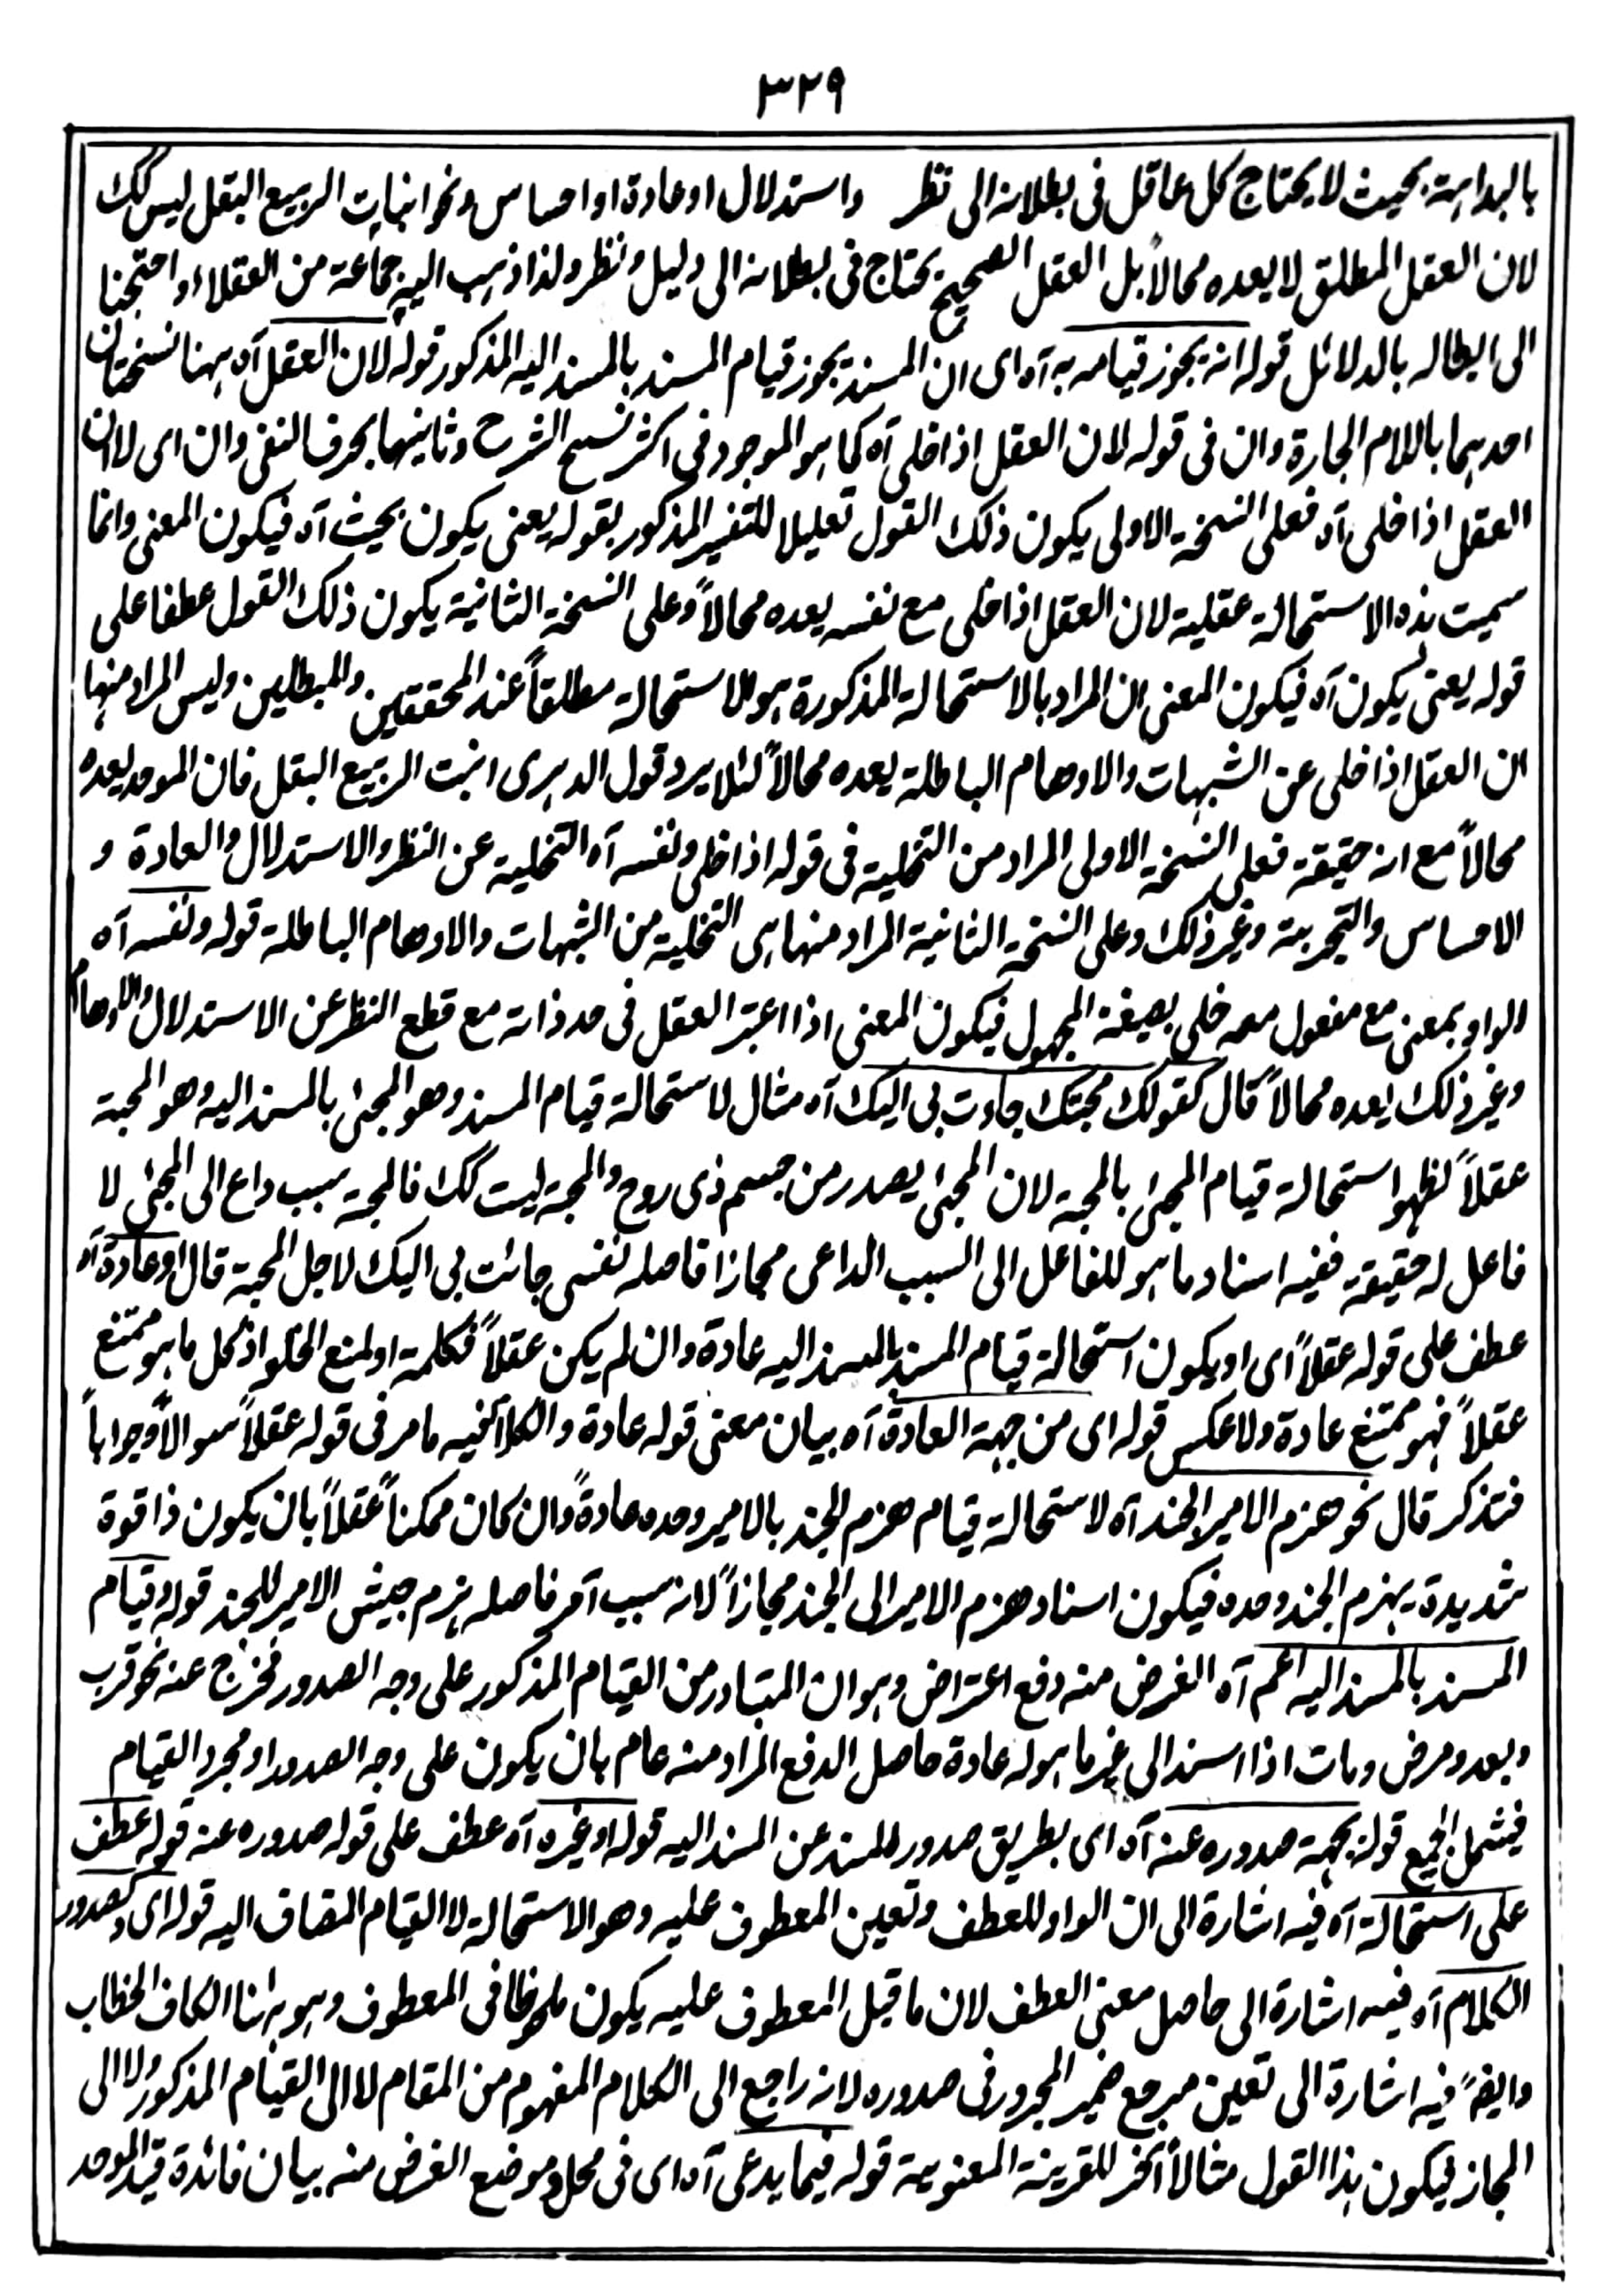 ٣٢٩
بالبداهة بحيث لا يحتاج كل عاقل فى بطلانه الى نظر واستدلال او عادة او احساس ونحو انبات الربيع البقل ليس كك
لان العقل المطلق لا يعده محالاً بل العقل الصحيح يحتاج فى بطلانه الى دليل ونظر ولذا ذهب اليه جماعة من العقلاء واحتجنا
الى ابطاله بالدلائل قوله انه يجوز قيامه به آه اى ان المسند يجوز قيام المسند بالمسند اليه المذكور قوله لان العقل آه ههنا نسختان
احدهما باللام الجارة وان فى قوله لان العقل اذا خلى آه كما هو الموجود فى اكثر نسخ الشرح وثانيها بحرف النفى وان اى لا ان
العقل اذا خلى آه فعلى النسخة الاولى يكون ذلك القول تعليلا للتفسير المذكور بقوله يعنى يكون بحيث آه فيكون المعنى وانما
سميت هذه الاستحالة عقلية لان العقل اذا خلى مع نفسه يعده محالاً وعلى النسخة الثانية يكون ذلك القول عطفا على
قوله يعنى يكون آه فيكون المعنى ان المراد بالاستحالة المذكورة هو الاستحالة مطلقاً عند المحققين والمبطلين وليس المراد منها
ان العقل اذا خلى عن الشبهات والاوهام الباطلة يعده محالاً لئلا يرد قول الدهرى انبت الربيع البقل فان الموحد يعده
محالاً مع انه حقيقة فعلى النسخة الاولى المراد من التخلية فى قوله اذا خلى ونفسه آه التخلية عن النظر والاستدلال والعادة و
الاحساس والتجربة وغير ذلك وعلى النسخة الثانية المراد منها هى التخلية من الشبهات والاوهام الباطلة قوله ونفسه آه
الواو بمعنى مع مفعول معه خلى بصيغة المجهول فيكون المعنى اذا اعتبر العقل فى حد ذاته مع قطع النظر عن الاستدلال والاوهام
وغير ذلك يعده محالاً قال كقولك محبتك جاءت بى اليك آه مثال لاستحالة قيام المسند وهو المجئ بالمسند اليه وهو المحبة
عقلاً لظهور استحالة قيام المجئ بالمحبة لان المجئ يصدر من جسم ذى روح والمحبة ليست كك فالمحبة سبب داع الى المجئ لا
فاعل له حقيقة ففيه اسناد ما هو للفاعل الى السبب الداعى مجازا فاصله نفسى جائت بى اليك لاجل المحبة قال او عادة آه
عطف على قوله عقلاً اى او يكون استحالة قيام المسند بالمسند اليه عادة وان لم يكن عقلاً فكلمة او لمنع الخلو اذ كل ما هو ممتنع
عقلاً فهو ممتنع عادة ولا عكس قوله اى من جهة العادة آه بيان معنى قوله عادة والكلام فيه ما مر فى قوله عقلاً سوالاً وجواباً
فتذكر قال نحو هزم الامير الجند آه لاستحالة قيام هزم الجند بالامير وحده عادةً وان كان ممكناً عقلاً بان يكون ذا قوة
شديدة يهزم الجند وحده فيكون اسناد هزم الامير الى الجند مجازاً لانه سبب آمر فاصله هزم جيش الامير للجند قوله وقيام
المسند بالمسند اليه اعم آه الغرض منه دفع اعتراض وهو ان المتبادر من القيام المذكور على وجه الصدور فخرج عنه نحو قرب
وبعد ومرض ومات اذا اسند الى غير ما هو له عادة حاصل الدفع المراد منه عام بان يكون على وجه الصدور او مجرد القيام
فيشمل الجميع قوله بجهة صدوره عنه آه اى بطريق صدور المسند عن المسند اليه قوله او غيره آه عطف على قوله صدوره عنه قوله عطف
على استحالة آه فيه اشارة الى ان الواو للعطف وتعين المعطوف عليه وهو الاستحالة لا القيام المضاف اليه قوله اى وكصدور
الكلام آه فيه اشارة الى حاصل معنى العطف لان ما قبل المعطوف عليه يكون ملحوظا فى المعطوف وهو ههنا الكاف الخطاب
وايضً فيه اشارة الى تعين مرجع ضمير المجرور فى صدوره لانه راجع الى الكلام المفهوم من المقام لا الى القيام المذكور ولا الى
المجاز فيكون هذا القول مثالاً آخر للقرينة المعنوية قوله فيما يدعى آه اى فى محل وموضع الغرض منه بيان فائدة قيد الموحد